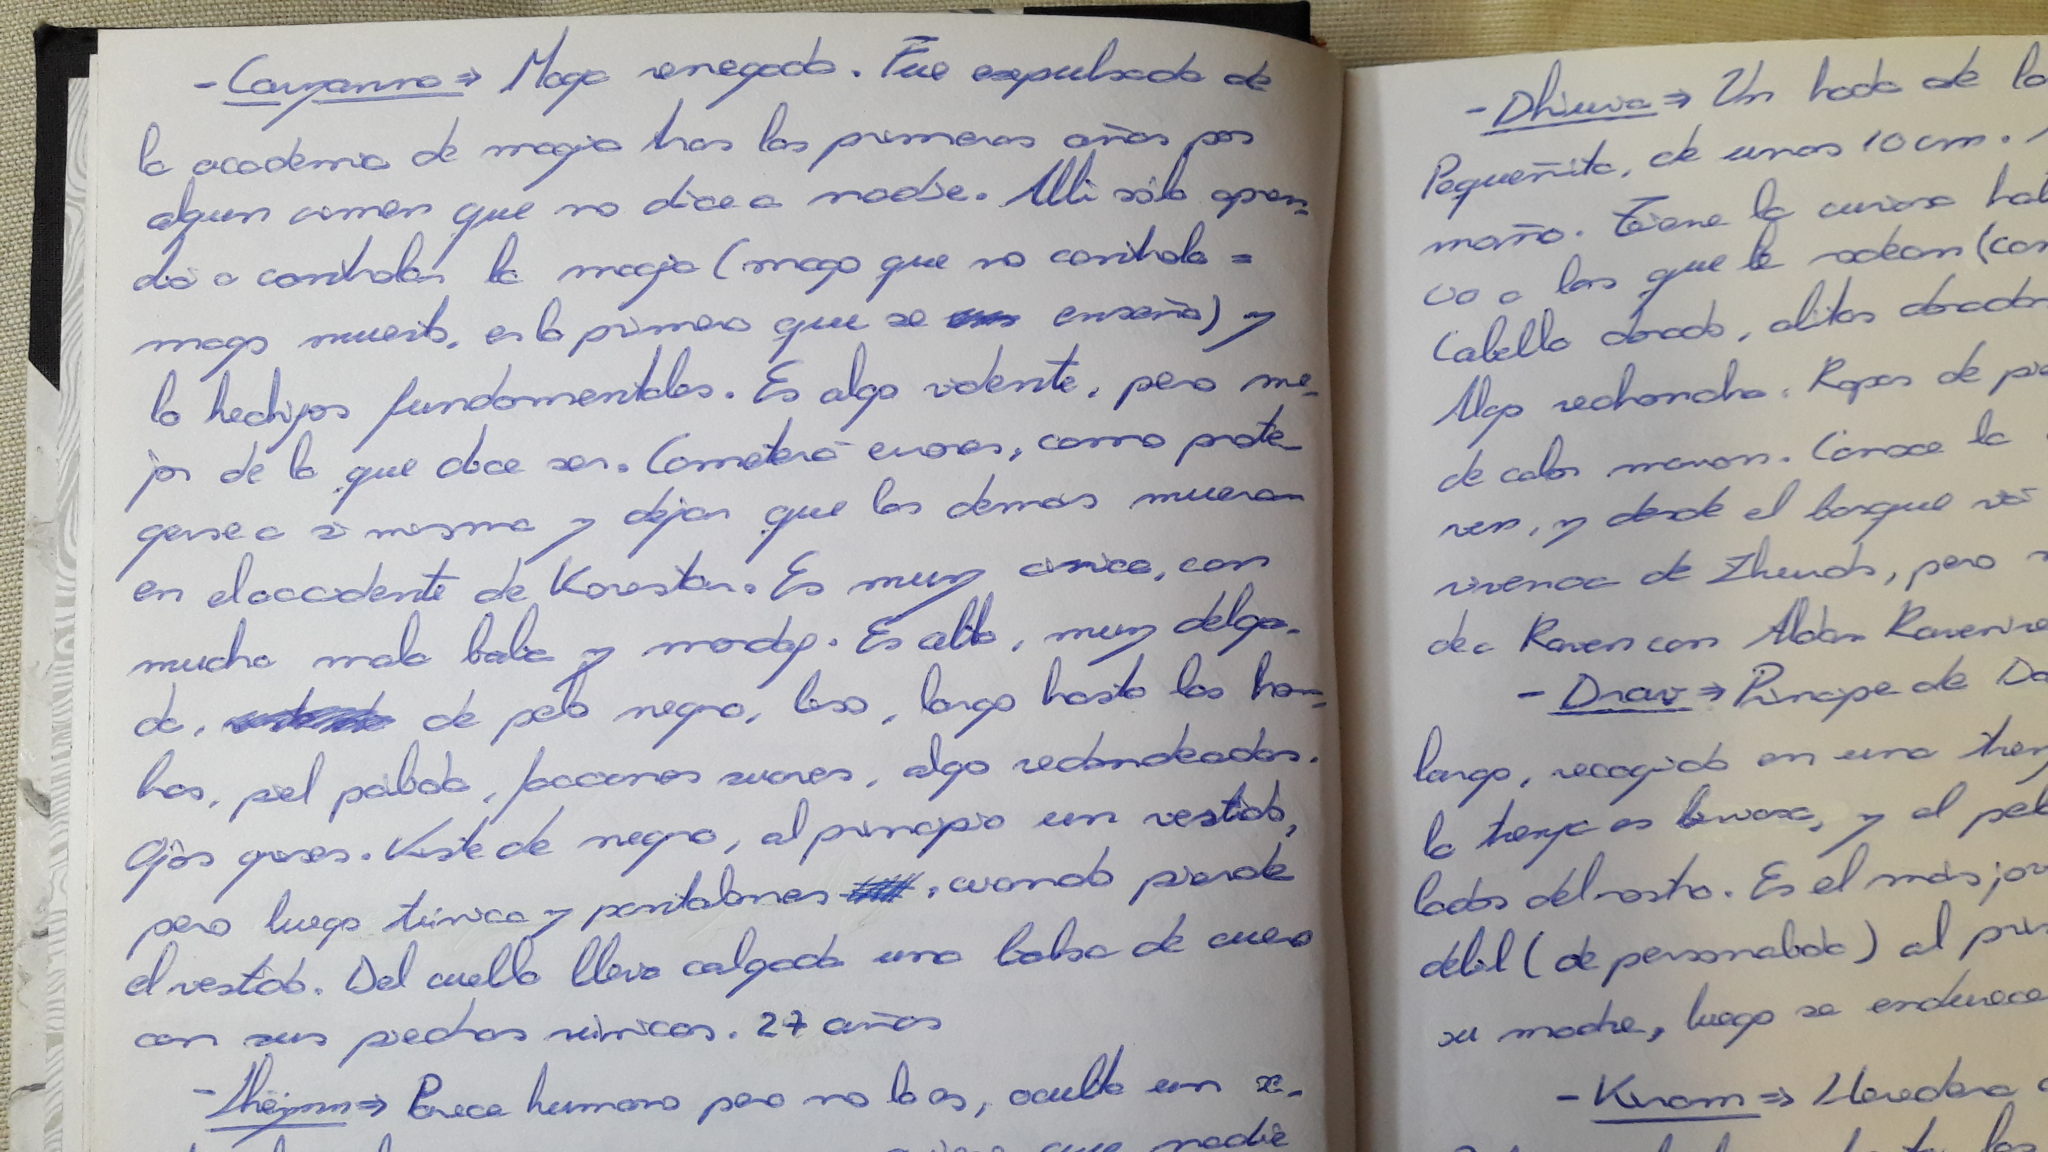 - Cauyanna ⇒ Maga renegada. Fue expulsada de
la academia de magia tras los primeros años por
algun crimen que no dice a nadie. Allí sólo apren-
dió a controlar la magia (mago que no controla =
mago muerto, es lo primero que se enseña) y
lo hechizos fundamentales. Es algo vidente, pero me-
jor de lo que dice ser. Cometerá errores, como prote-
gerse a sí misma y dejar que los demás mueran
en el accidente de Korestan. Es muy cínica, con
mucha mala baba y mordaz. Es alta, muy delga-
da, de pelo negro, liso, largo hasta los hom-
bros, piel pálida, facciones suaves, algo redondeadas.
Ojos grises. Viste de negro, al principio un vestido,
pero luego túnica y pantalones, cuando pierde
el vestido. Del cuello lleva colgada una bolsa de cuero
con sus piedras rúnicas. 27 años
- ⇒ Parece humano pero no lo es, oculta un se-
que nadie
- Dhiuvia ⇒ Un hada de lo
Pequeñita, de unos 10 cm.
maño. Tiene la curiosa hab
vo a los que le rodean (con
Cabello dorado, alitas doradas
Algo rechoncha. Ropas de pie
de color marrón. Conoce la
ven, y desde el bosque vió
vivencia de Zhends, pero
de a Raven con Aldan Ravenve
- Drav ⇒ Príncipe de Da
largo, recogido en una tren
la trenza es y el pelo
lados del rostro. Es el más jov
débil (de personalidad) al prin
su madre, luego se endurece
- Kiram ⇒ Heredera